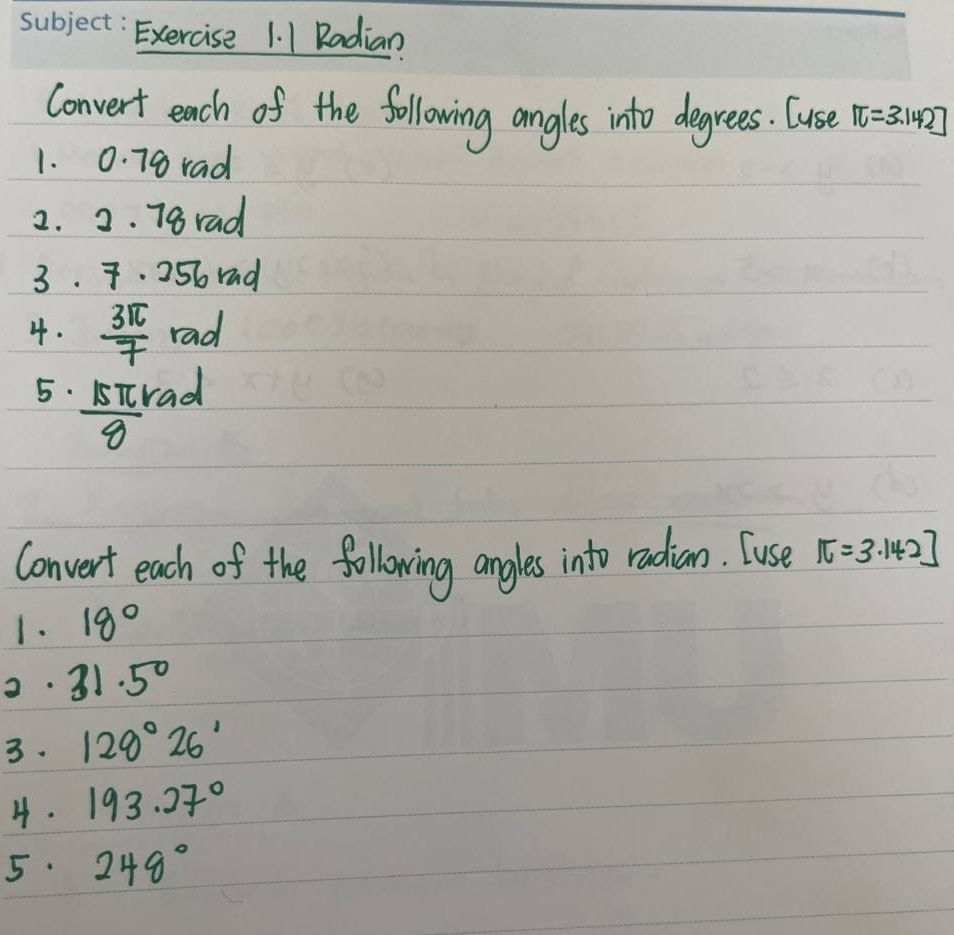 Subject : Exercise 1.1 Radian
Convert each of the following angles into degrees. [use π=3.142]
1. 0.78 rad
2. 2.78 rad
3. 7.256 rad
4. 3π/7 rad
5. 15π/8 rad
Convert each of the following angles into radian. [use π=3.142]
1. 18°
2. 31.5°
3. 128° 26'
4. 193.27°
5. 248°